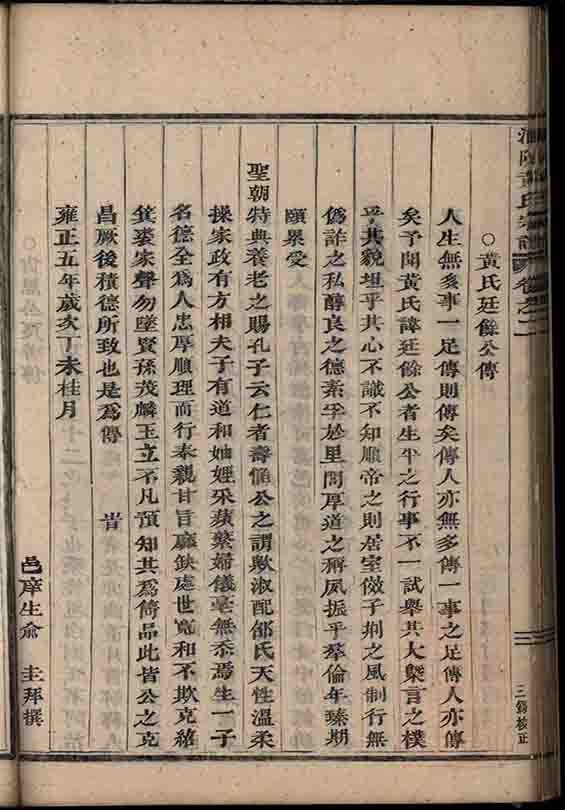 黃氏宗譜 卷之二
○黃氏廷餘公傳
人生無多事一足傳則傳矣傳人亦無多傳一事之足傳人亦傳
矣予聞黃氏諱廷餘公者生平之行事不一試舉其大槩言之樸
乎其貌坦乎其心不識不知順帝之則居室倣子荆之風制行無
僞詐之私醇良之德素孚於里閭厚道之稱夙振乎羣倫年臻期
頤累受
聖朝特典養老之賜孔子云仁者壽惟公之謂歟淑配邵氏天性溫柔
操家政有方相夫子有道和妯娌采蘋蘩婦儀毫無忝焉生一子
名德全爲人忠厚順理而行奉親甘旨靡缺處世寬和不欺克紹
箕裘家聲勿墜賢孫茂麟玉立不凡預知其爲儁品此皆公之克
昌厥後積德所致也是爲傳 旹
雍正五年歲次丁未桂月
邑庠生俞 圭拜撰
三錫校正